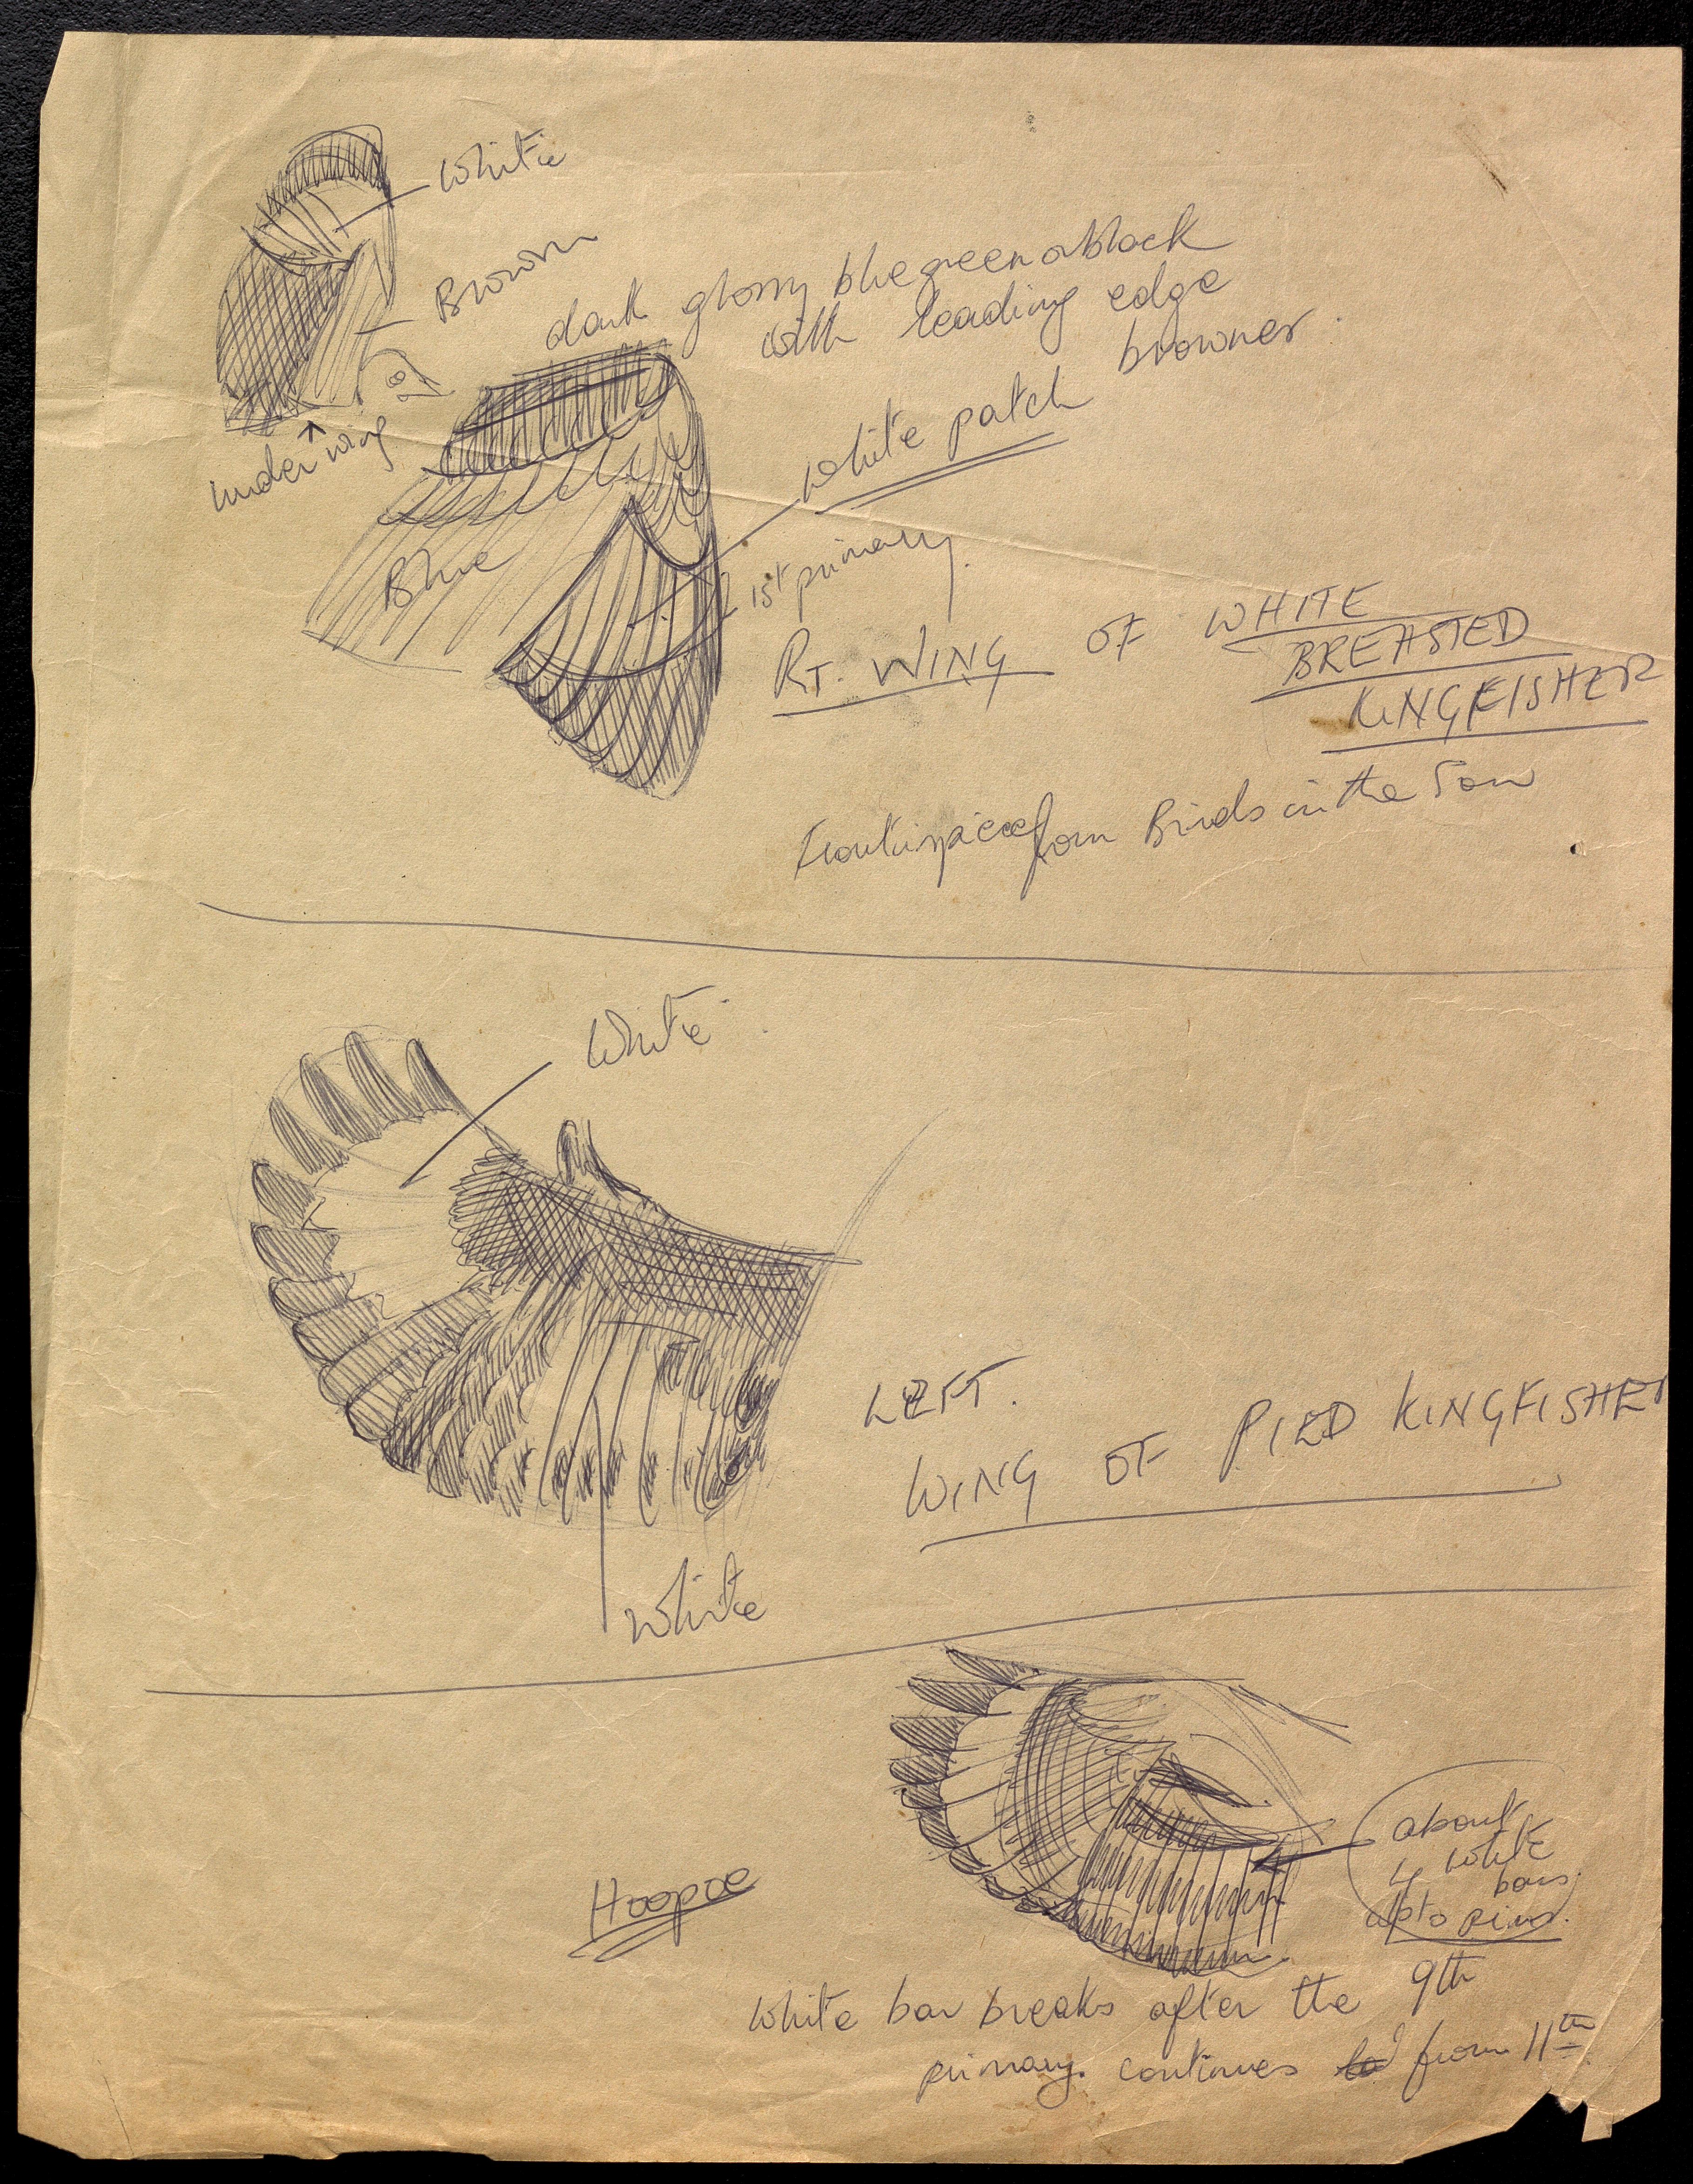 White
Brown
dark glossy blue green or black
with leading edge
browner.
under wing
White patch
Blue
1st primary.
RT. WING OF WHITE
BREASTED
KINGFISHER
Frontispiece from Birds in the Sun
White.
LEFT.
WING OF PIED KINGFISHER
White
about
4 white
bars.
upto
Hoopoe
White bar breaks after the 9th
primary. continues from 11th.